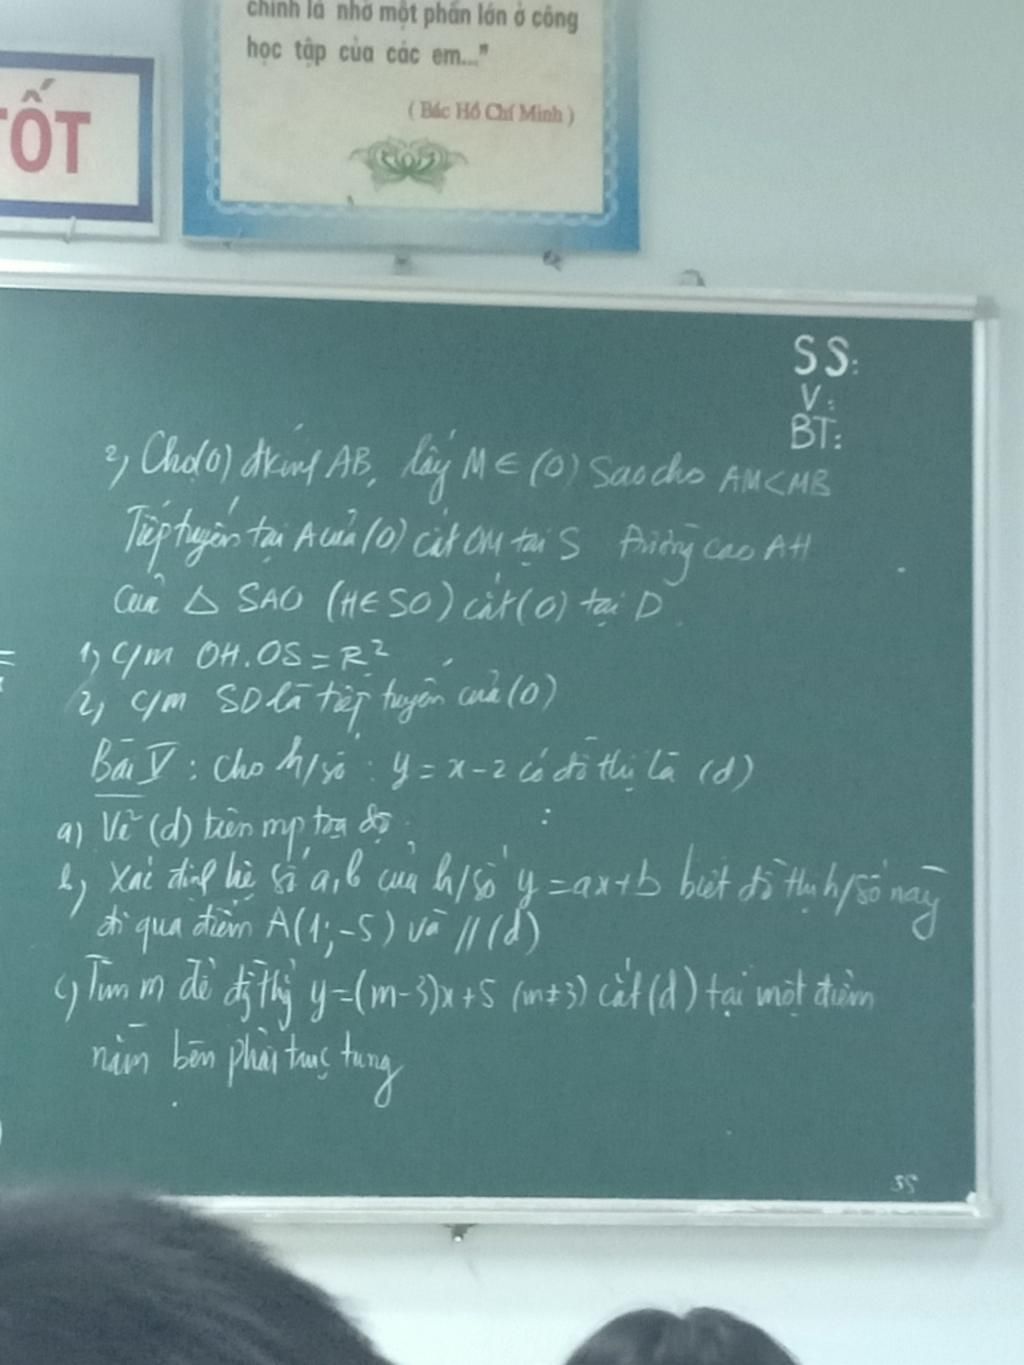 chính là nhờ một phần lớn ở công
học tập của các em..."
( Bác Hồ Chí Minh )
TỐT
SS:
V:
BT:
2, Cho (O) đkính AB, lấy M ∈ (O) sao cho AM < MB
Tiếp tuyến tại A của (O) cắt OM tại S Đường cao AH
của △ SAO (H∈SO) cắt (O) tại D.
1, C/m OH.OS = R²
2, C/m SD là tiếp tuyến của (O)
Bài V : Cho h/số : y = x - 2 có đồ thị là (d)
a) Vẽ (d) trên mp tọa độ.
b) Xác định hệ số a, b của h/số y = ax + b biết đồ thị h/số này
đi qua điểm A(1; -5) và // (d)
c) Tìm m để đồ thị y = (m-3)x + 5 (m ≠ 3) cắt (d) tại một điểm
nằm bên phải trục tung